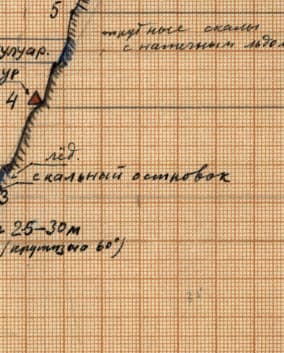 5
трубные скалы
с натечным льдом
улуар.
ур
4
лёд.
скальный островок
3
25-30м
(крутизна 60°)